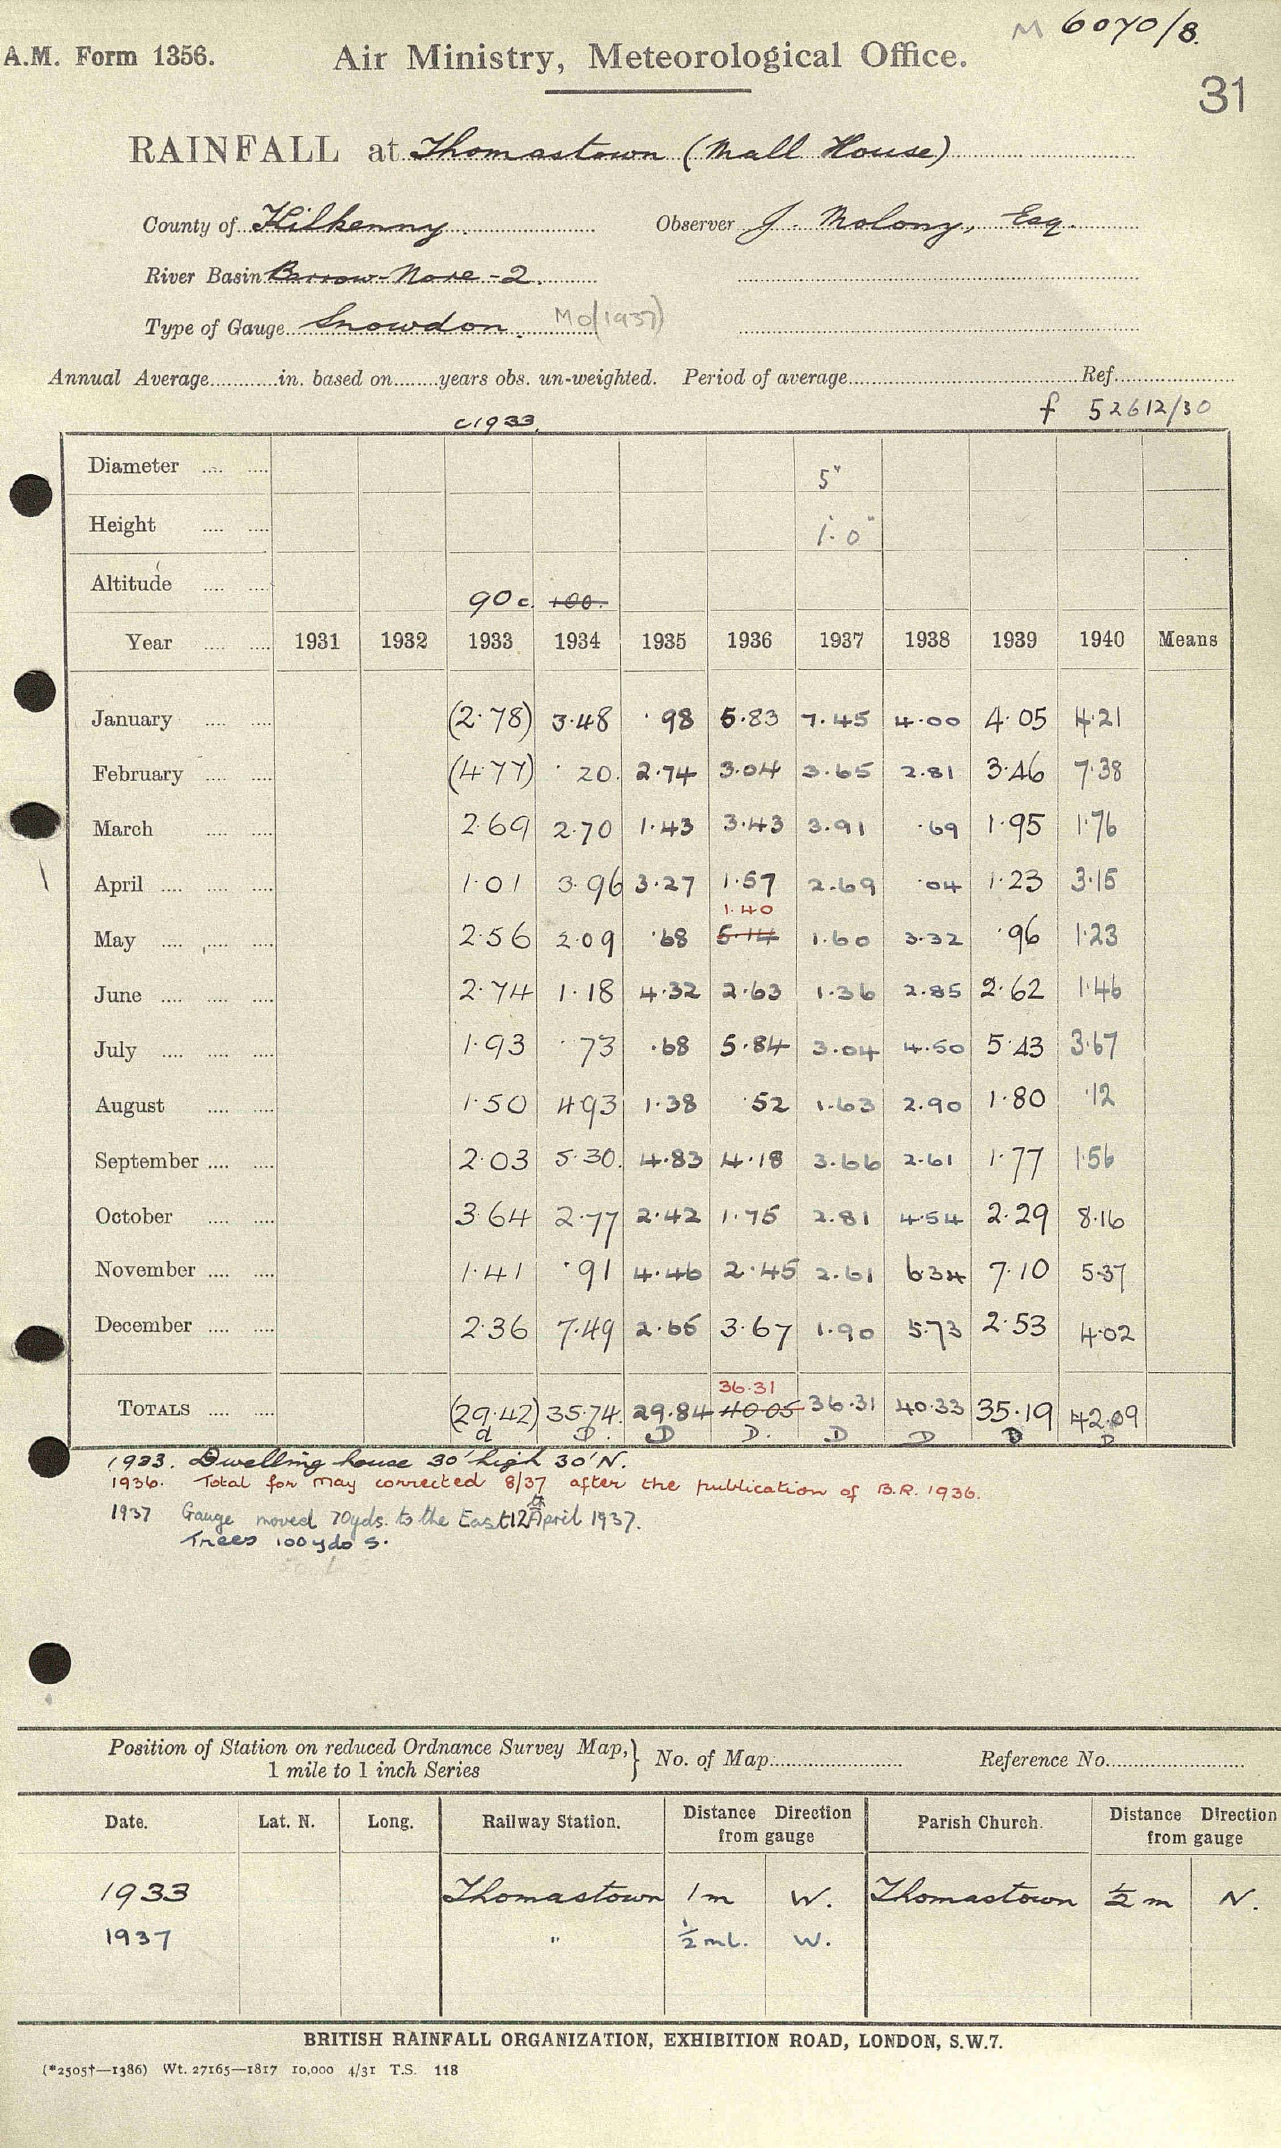 M 6070/8.
A.M. Form 1356. Air Ministry, Meteorological Office.
31
RAINFALL at Thomastown (Mall House)
County of Kilkenny. Observer J. Molony, Esq.
River Basin Barrow-Nore-2.
Type of Gauge Snowdon. MO(1937)
Annual Average............in. based on........years obs. un-weighted. Period of average.............Ref.............
f 52612/30
c1933.
Diameter .... .... 5"
Height .... .... 1' 0"
Altitude .... .... 90c. 100.
Year .... .... 1931 1932 1933 1934 1935 1936 1937 1938 1939 1940 Means
January .... .... (2.78) 3.48 .98 5.83 7.45 4.00 4.05 4.21
February .... .... (4.77) .20. 2.74 3.04 3.65 2.81 3.46 7.38
March .... .... 2.69 2.70 1.43 3.43 3.91 .69 1.95 1.76
April .... .... .... 1.01 3.96 3.27 1.57 2.69 .04 1.23 3.15
1.40
May .... .... .... 2.56 2.09 .68 5.14 1.60 3.32 .96 1.23
June .... .... .... 2.74 1.18 4.32 2.63 1.36 2.85 2.62 1.46
July .... .... .... 1.93 .73 .68 5.84 3.04 4.50 5.43 3.67
August .... .... 1.50 4.93 1.38 .52 1.63 2.90 1.80 .12
September .... .... 2.03 5.30. 4.83 4.18 3.66 2.61 1.77 1.56
October .... .... 3.64 2.77 2.42 1.75 2.81 4.54 2.29 8.16
November .... .... 1.41 .91 4.46 2.45 2.61 6.34 7.10 5.37
December .... .... 2.36 7.49 2.65 3.67 1.90 5.73 2.53 4.02
36.31
TOTALS .... .... (29.42) 35.74. 29.84 40.05 36.31 40.33 35.19 42.09
d D. D D. D D D D
1933. Dwelling house 30' high 30' N.
1936. Total for May corrected 8/37 after the publication of B.R. 1936.
1937 Gauge moved 70yds. to the East 12th April 1937.
Trees 100yds S.
Position of Station on reduced Ordnance Survey Map, 1 mile to 1 inch Series } No. of Map............ Reference No............
Date. Lat. N. Long. Railway Station. Distance Direction from gauge Parish Church. Distance Direction from gauge
1933 Thomastown 1m W. Thomastown ½ m N.
1937 " ½ ml. W.
BRITISH RAINFALL ORGANIZATION, EXHIBITION ROAD, LONDON, S.W.7.
(*2505†—1386) Wt. 27165—1817 10,000 4/31 T.S. 118